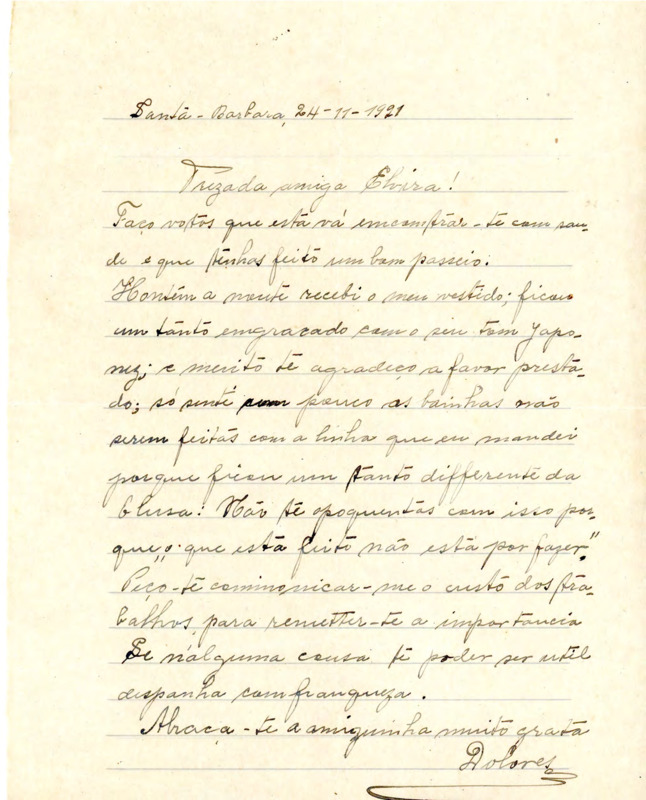 Santa - Barbara, 24-11-1921
Prezada amiga Elvira!
Faço votos que esta vá emcomtrar-te com sau-
de e que tenhas feito um bom passeio.
Hontem a noute recebi o meu vestido; ficou
um tanto emgraçado com o seu tom Japo-
nez; e muito te agradeço a favor presta-
do; só sente um pouco as bainhas não
serem feitas com a linha que eu mandei
porque ficou um tanto differente da
blusa! Não te apoquentas com isso por-
que "o que está feito não está por fazer."
Peço-te comunicar-me o custo dos tra-
balhos, para remetter-te a importancia
Se n'alguma cousa te poder ser util
despanha com franqueza.
Abraça-te a amiguinha muito grata
Dolores